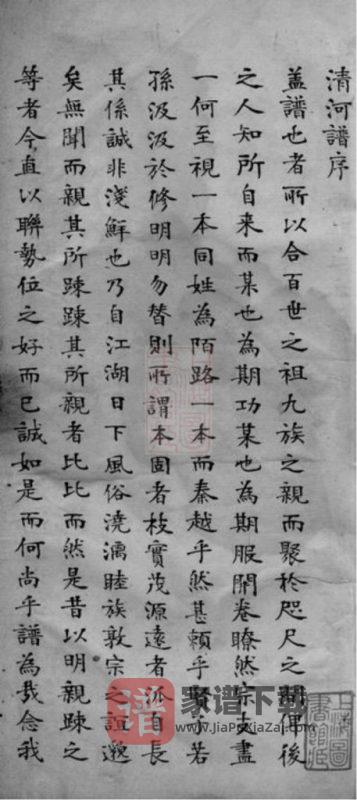 清河譜序
蓋譜也者所以合百世之祖九族之親而聚於咫尺之間俾後
之人知所自来而某也為期功某也為期服開卷瞭然宗支盡
一何至視一本同姓為陌路一本而秦越乎然甚頼乎賢子若
孫汲汲於修明明勿替則所謂本固者枝實茂源遠者派自長
其係誠非淺鮮也乃自江湖日下風俗澆漓睦族敦宗之誼邈
矣無聞而親其所踈踈其所親者比比而然是昔以明親踈之
等者今直以聯勢位之好而已誠如是而何尚乎譜為我念我
譜 家谱下载
www.JiaPuXiaZai.com